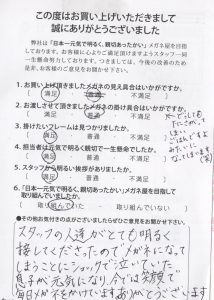 この度はお買い上げいただきまして
誠にありがとうございました
弊社は「日本一元気で明るく、親切あったかい」メガネ屋を目指
しております。お客様に心よりご満足頂けますようスタッフ一同
一生懸命努力しております。つきましては、今後の改善のため
是非、お客様のご意見をお聞かせ下さい。
1. お買い上げ頂きましたメガネの見え具合はいかがですか。
満足 普通 不満足
2. お渡しさせて頂きましたメガネの掛け具合はいかがですか。
満足 普通 不満足
3. 掛けたいフレームは見つかりましたか。
満足 普通 不満足
4. 担当者は元気で明るく親切で一生懸命でしたか。
満足 普通 不満足
5. スタッフから明るい挨拶がありましたか。
満足 普通 不満足
6. 「日本一元気で明るく、親切あったかい」メガネ屋を目指して
取り組んでいましたか。
取り組んでいた 取り組んでいない
●その他お気付きの点がございましたらぜひご意見をお聞かせ下さい。
スタッフの人達がとても明るく
接してくださったのでメガネになって
しまうことにショックで泣いていた
息子が元気になり今では笑顔で
毎日メガネをかけています。ありがとうございます